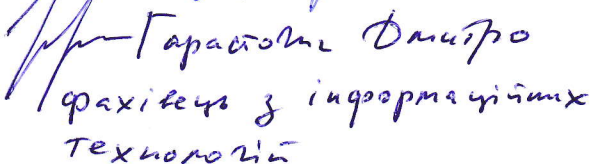 Гарастович Дмитро
фахівець з інформаційних
технологій